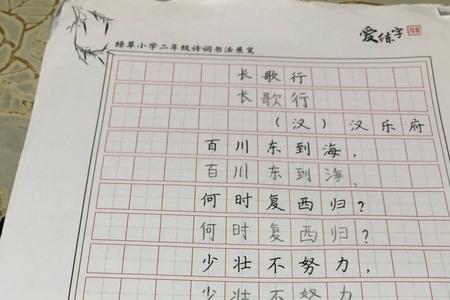 爱练字
绿草小学二年级诗词书法展览
长歌行
长歌行
（汉）汉乐府
百川东到海，
百川东到海，
何时复西归？
何时复西归？
少壮不努力，
少壮不努力